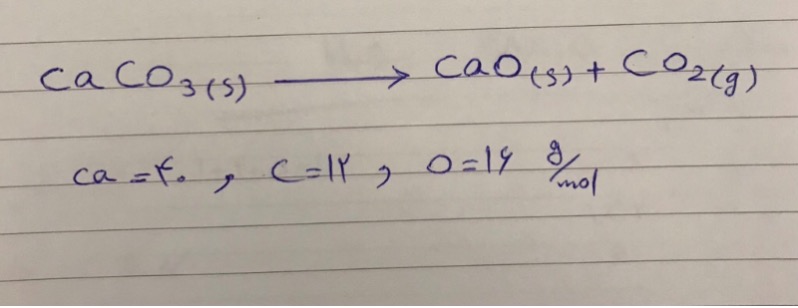 CaCO3(s) ⟶ CaO(s) + CO2(g)
Ca = ۴۰ , C = ۱۲ , O = ۱۶ g/mol